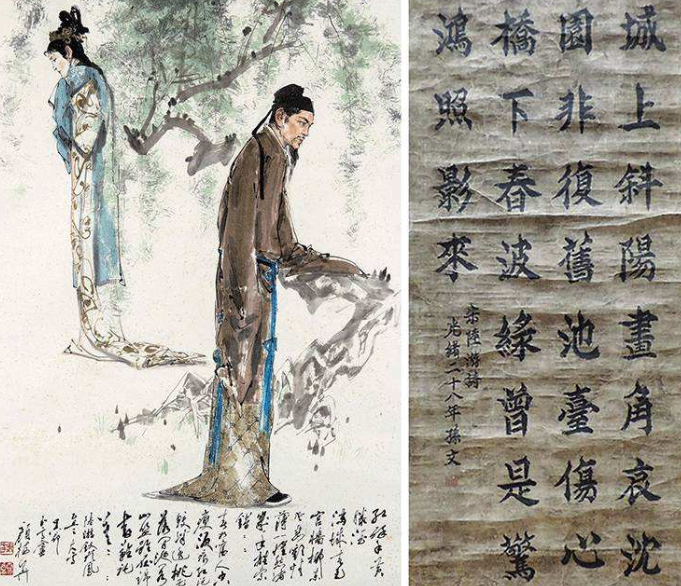 紅酥手黃
縢酒
滿城春色
宮墻柳東
風惡歡情
薄一懷愁緒
錯
春如舊人空
瘦淚痕紅浥
鮫綃透桃
花落閑池閣
山盟雖在錦
書難託
莫
陸游釵頭鳳
城上斜陽畫角哀沈
園非復舊池臺傷心
橋下春波綠曾是驚
鴻照影來
宋陸游詩
光緒二十八年孫文